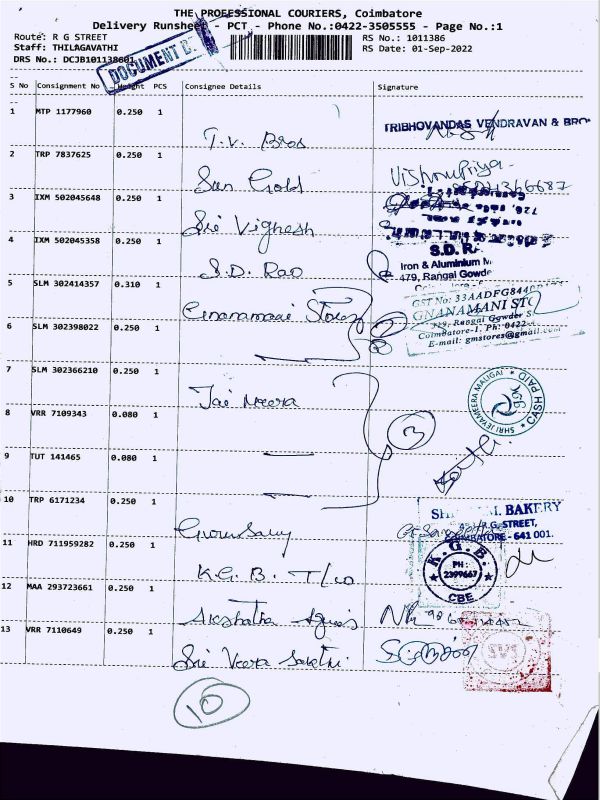 THE PROFESSIONAL COURIERS, Coimbatore
Delivery Runsheet - PCT - Phone No.:0422-3505555 - Page No.:1
Route: R G STREET
RS No.: 1011386
Staff: THILAGAVATHI
RS Date: 01-Sep-2022
DRS No.: DCJB101138601
DOCUMENT D
S No Consignment No Weight PCS Consignee Details Signature
1 MTP 1177960 0.250 1
T.V. Bros
TRIBHOVANDAS VENDRAVAN & BRO
2 TRP 7837625 0.250 1
Sun Gold
Vishnupriya
3 IXM 502045648 0.250 1
Sri Vighesh
4 IXM 502045358 0.250 1
S.D. Rao
S.D. R
Iron & Aluminium M
479, Rangai Gowde
5 SLM 302414357 0.310 1
Gnanamani Stores
GST No: 33AADFG844
GNANAMANI STO
319, Rangai Gowder S
Coimbatore-1. Ph: 0422-
E-mail: gmstores@gmail.com
6 SLM 302398022 0.250 1
2
7 SLM 302366210 0.250 1
Jai Meera
SHRI JEYAMEERA MALIGAI
CASH PAID
8 VRR 7109343 0.080 1
3
9 TUT 141465 0.080 1
10 TRP 6171234 0.250 1
BAKERY
R.G. STREET,
COIMBATORE - 641 001.
11 HRD 711959282 0.250 1
K.G.B. T/co
K.G.B.
PH :
2399667
CBE
12 MAA 293723661 0.250 1
Akshatha
13 VRR 7110649 0.250 1
Sri Veera Sakthi
10